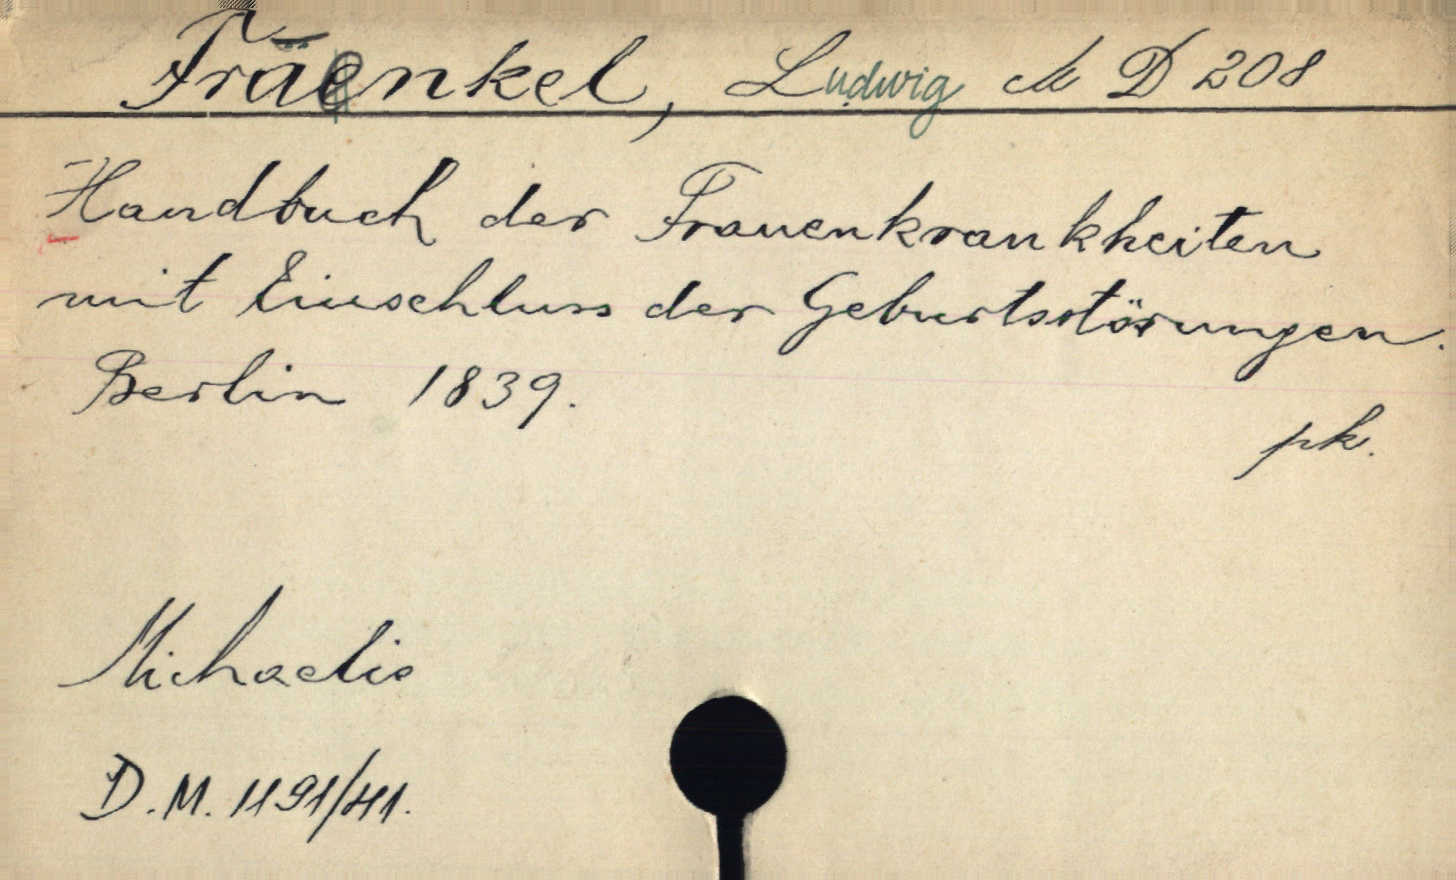 Fraenkel, Ludwig M D 208
Handbuch der Frauenkrankheiten
mit Einschluss der Geburtsstörungen.
Berlin 1839.
pk.
Michaelis
D.M. 1191/41.